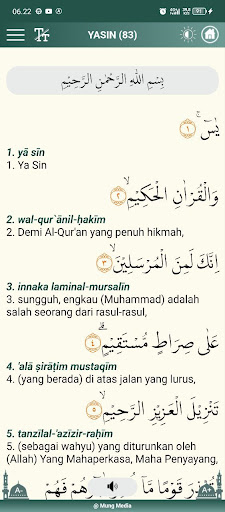 06.22
YASIN (83)
بِسْمِ اللّٰهِ الرَّحْمٰنِ الرَّحِيْمِ
يٰسۤ ۚ ١
1. yā sīn
1. Ya Sin
وَالْقُرْاٰنِ الْحَكِيْمِۙ ٢
2. wal-qur`ānil-ḥakīm
2. Demi Al-Qur'an yang penuh hikmah,
اِنَّكَ لَمِنَ الْمُرْسَلِيْنَۙ ٣
3. innaka laminal-mursalīn
3. sungguh, engkau (Muhammad) adalah
salah seorang dari rasul-rasul,
عَلٰى صِرَاطٍ مُّسْتَقِيْمٍۗ ٤
4. 'alā ṣirāṭim mustaqīm
4. (yang berada) di atas jalan yang lurus,
تَنْزِيْلَ الْعَزِيْزِ الرَّحِيْمِۙ ٥
5. tanzīlal-'azīzir-raḥīm
5. (sebagai wahyu) yang diturunkan oleh
(Allah) Yang Mahaperkasa, Maha Penyayang,
@ Mung Media